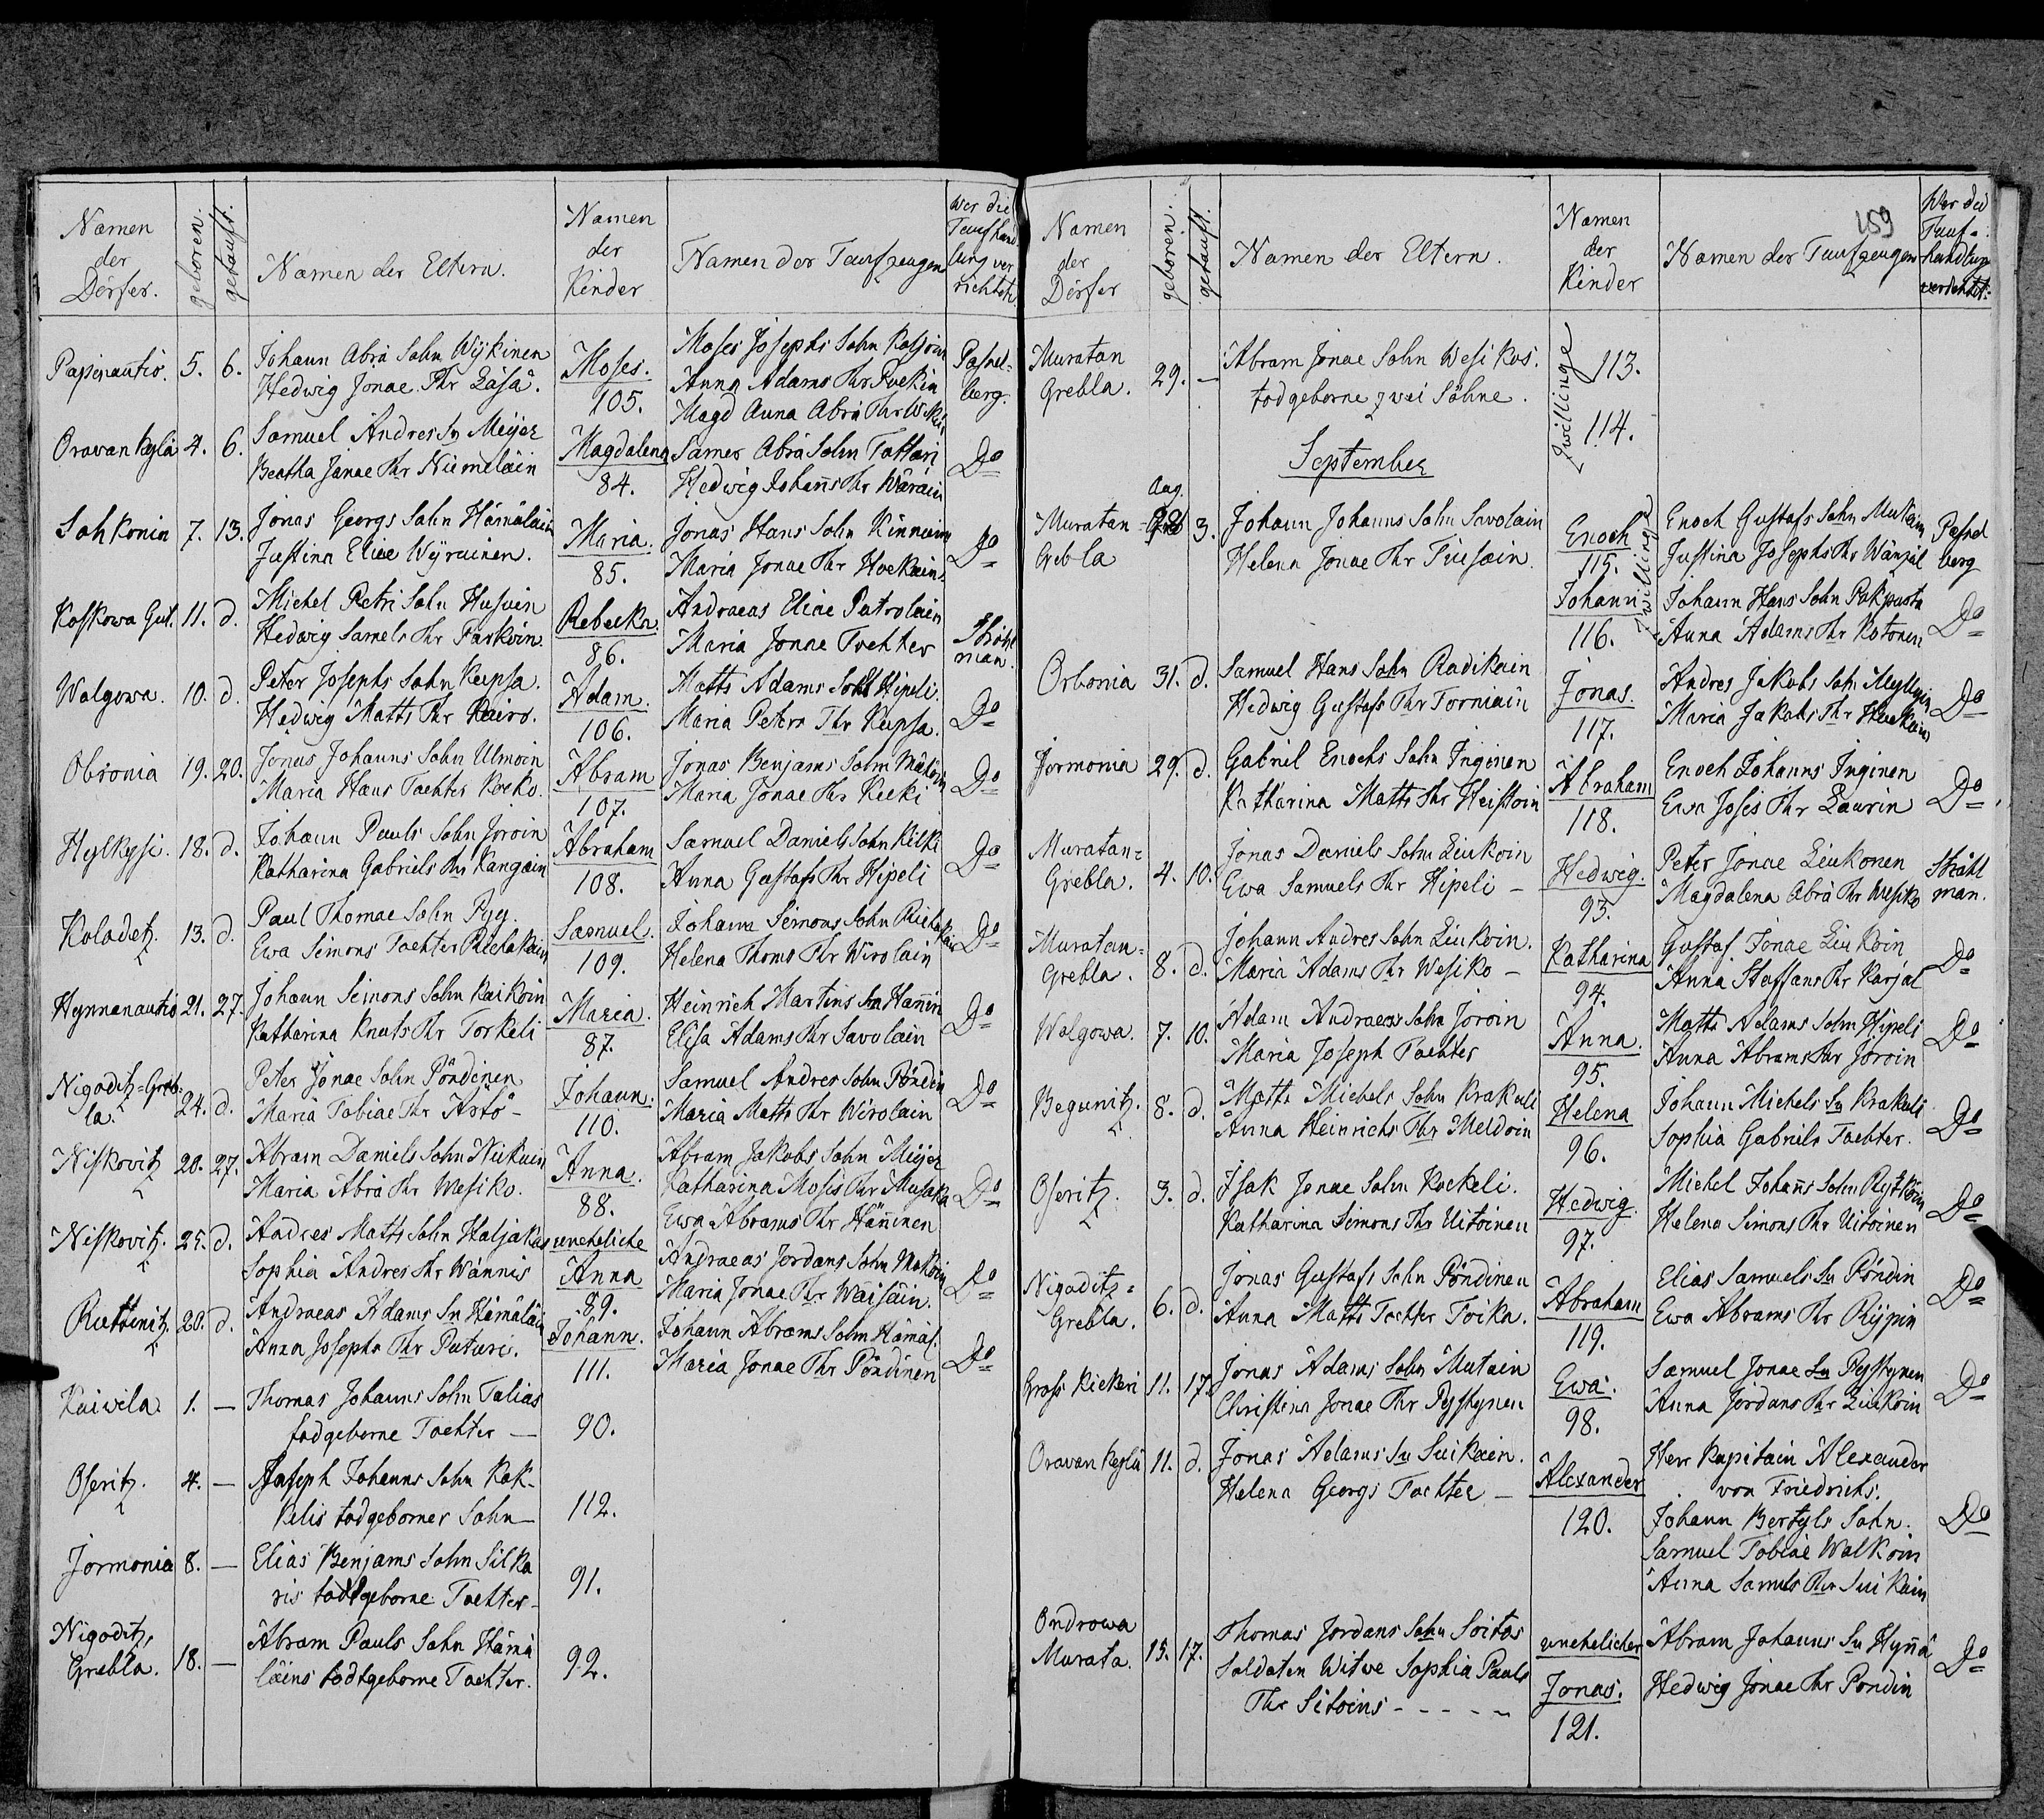 Namen der Dörfer.
geboren.
getauft.
Namen der Eltern.
Namen der Kinder
Namen der Taufzeugen
Wer die Taufhandlung verrichtete.
Papinautio. 5. 6. Johann Abrā Sohn Wÿkinen Moses. Moses Josephs Sohn
Hedwig Jonae Thr Läsä. 105. Anna Adams Thr
Magd Anna Abrā Thr
Oravankylä 4. 6. Samuel Andres Sn Meijer Magdalena Sames Abrā Sohn Tattari Do
Beatha Janae Thr Niemeläin 84. Hedwig Johañs Thr Wäräin
Sohkonia 7. 13. Jonas Georgs Sohn Hämäläin Maria. Jonas Hans Sohn Kinnuin Do
Justina Eliae Wÿrainen. 85. Maria Jonae Thr
Koskowa Gut. 11. d. Michel Petri Sohn Husuin Rebecka Andraeas Eliae Putrolain
Hedwig Samels Thr Parkoin. 86. Maria Jonae Tochter
Walgowa. 10. d Peter Josephs Sohn Kupsa. Adam. Matts Adams Sohn Hipeli. Do
Hedwig Matts Thr Kairo. 106. Maria Peters Thr Kupsa.
Obronia 19. 20. Jonas Johanns Sohn Ulmoin Abram Jonas Benjams Sohn Do
Maria Hans Tochter Kocko. 107. Maria Jonae Thr Kecki
Hylkysi. 18. d. Johann Pauls Sohn Joroin Abraham Samuel Daniels Sohn Kilki Do
Katharina Gabriels Thr Kangain 108. Anna Gustafs Thr Hipeli
Koladetz. 13. d. Paul Thomae Sohn Pyy. Samuel. Johann Simons Sohn Do
Ewa Simons Tochter 109. Helena Thoms Thr Wirolain
Hynnenautio 21. 27. Johann Simons Sohn Kaikoin Maria. Heinrich Martins Sn Hañin Do
Katharina Knuts Thr Torkeli 87. Elisa Adams Thr Savolain
Nigoditz=Greb= Peter Jonae Sohn Pöndinen Johann. Samuel Andres Sohn Pöndin Do
la. 24. d. Maria Tobiae Thr Ästö 110. Maria Matts Thr Wirolain
Niskovitz 20. 27. Abram Daniels Sohn Niekuin Anna. Abram Jakobs Sohn Meijer
Maria Abrā Thr Wesiko. 88. Katharina Mosis Thr Musaka Do
Ewa Abrams Thr Häñinen
Niskovitz. 25. d. Andres Matts Sohn Haljakas uneheliche Andraeas Jordans Sohn
Sophia Andres Thr Wännis Anna Maria Jonae Thr Wäisäin. Do
89.
Ruttinitz 20. d. Andraeas Adams Sn Hämäläin Johann. Johann Abrams Sohn Hämäl. Do
Anna Josephs Thr Puturi. 111. Maria Jonae Thr Pöndinen
Kuiwila. 1. — Thomas Johanns Sohn Talias
todgeborne Tochter — 90.
Oseritz. 4. — Joseph Johanns Sohn Kok-
kelis todgeborner Sohn — 112.
Jormonia 8. — Elias Benjams Sohn Silka
ris todtgeborne Tochter - 91.
Nigoditz, Abram Pauls Sohn Hämä
Grebla. 18. — läins todtgeborne Tochter. 92.
159
Namen der Dörfer
geboren.
getauft.
Namen der Eltern.
Namen der Kinder
Namen der Taufzeugen
Wer die Tauf- handlung verrichtet.
Muratan Abram Jonae Sohn Wesikos. Zwillinge 113.
Grebla. 29. — todgeborne zwei Söhne. 114.
September
Aug.
Muratan= 28 3. Johann Johanns Sohn Savolain Enoch Enoch Gustafs Sohn Mutain
Grebla Helena Jonae Thr Tiusain. 115. Justina Josephs Thr
Zwillinge
Johann Johann Hans Sohn Do
116. Anna Adams Thr Kotonen
Orbonia 31. d. Samuel Hans Sohn Radikain Jonas. Andres Jakobs Sohn Do
Hedwig Gustafs Thr Torniain 117. Maria Jakobs Thr
Jormonia 29. d. Gabriel Enochs Sohn Inginen Abraham Enoch Johanns Inginen Do
Katharina Matts Thr Heistoin 118. Ewa Josis Thr Laurin
Muratan= Jonas Daniels Sohn Liukoin Hedwig. Peter Jonae Liukonen Ståhl
Grebla. 4. 10. Ewa Samuels Thr Hipeli — 93. Magdalena Abrā Thr Wesiko man.
Muratan= Johann Andres Sohn Liukoin. Katharina Gustaf Jonae Liukoin Do
Grebla. 8. d. Maria Adams Thr Wesiko — 94. Anna Staffans Thr Karjal
Walgowa. 7. 10. Adam Andraeas Sohn Joroin Anna. Matts Adams Sohn Hipeli Do
Maria Joseph Tochter 95. Anna Abrams Thr Joroin
Begunitz. 8. d. Matts Michels Sohn Krakuli Helena Johann Michels Sn Krakuli Do
Anna Heinrichs Thr Meldoin 96. Sophia Gabriels Tochter.
Oseritz. 3. d. Isak Jonae Sohn Kockeli. Hedwig. Michel Johañs Sohn Rytköin Do
Katharina Simons Thr Uitoinen 97. Helena Simons Thr Uitoinen
Nigoditz= Jonas Gustafs Sohn Pöndinen Abraham Elias Samuels Sn Pöndin Do
Grebla. 6. d. Anna Matts Tochter Toika. 119. Ewa Abrams Thr Rijpin
Gross Kickeri 11. 17. Jonas Adams Sohn Mutain Ewa. Samuel Jonae Sn Pystynen Do
Christina Jonae Thr Pystynen 98. Anna Jordans Thr Liukoin
Oravankylä 11. d. Jonas Adams Sn Suikain. Alexander Herr Kapitain Alexander
Helena Georgs Tochter — 120. von Friedrichs.
Johann Bertyls Sohn. Do
Samuel Tobiae Walkoin
Anna Samuels Thr Suikain
Ondrowa Thomas Jordans Sohn Soitas unehelicher Abram Johanns Sn Hyñä Do
Murata. 15. 17. Soldaten Witwe Sophia Pauls Jonas. Hedwig Jonae Thr Pondin
Thr Sitoins - - - - - 121.